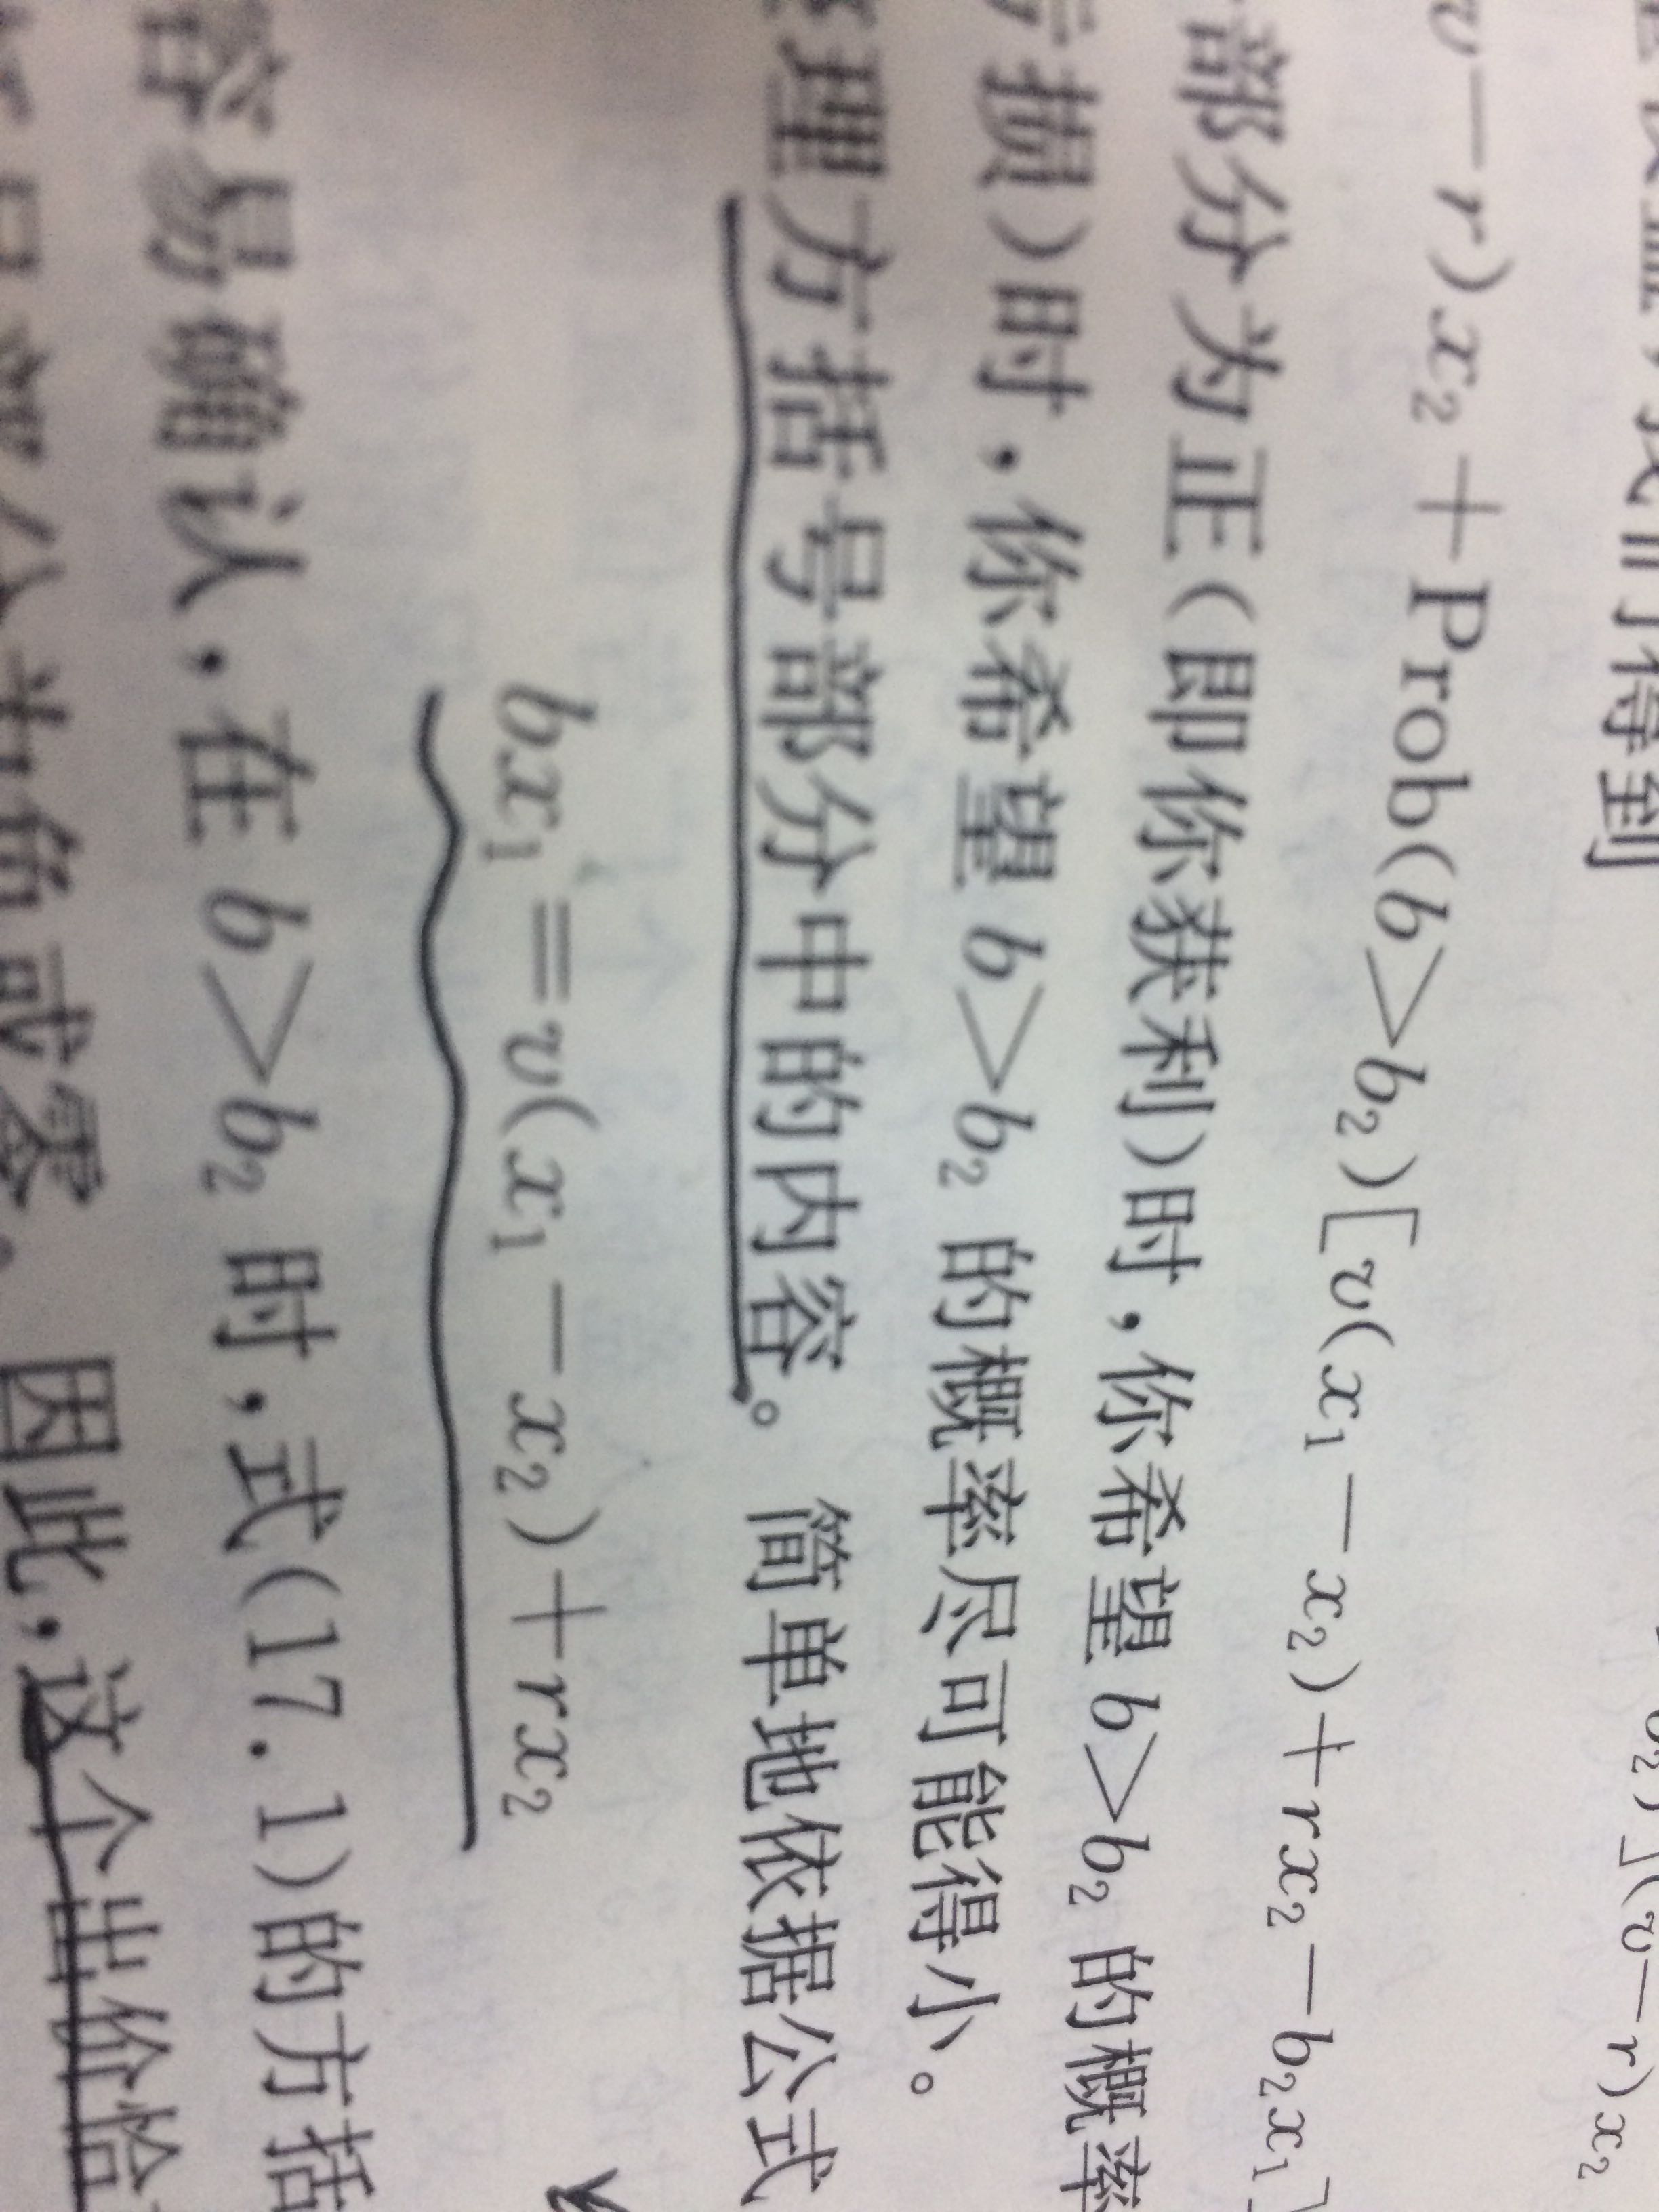 我们得到
b₂)](v－r)x₂
v－r)x₂＋Prob(b＞b₂)[v(x₁－x₂)＋rx₂－b₂x₁]
部分为正(即你获利)时,你希望b＞b₂的概率
损)时,你希望b＞b₂的概率尽可能得小。
理方括号部分中的内容。简单地依据公式
bx₁＝v(x₁－x₂)＋rx₂
容易确认,在b＞b₂时,式(17.1)的方括
部分为负或零。因此,这个出价恰